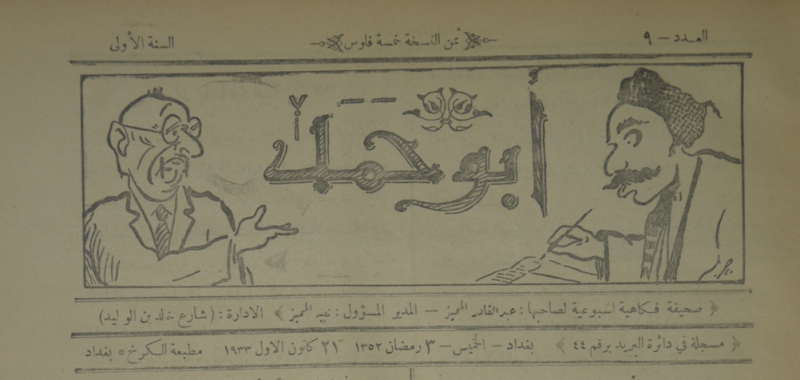 العدد - ٩
ثمن النسخة خمسة فلوس
السنة الأولى
أبو حمد
صحيفة فكاهية اسبوعية لصاحبها : عبدالقادر المميز - المدير المسؤول : نبيه المميز الادارة : (شارع خالد بن الوليد)
مسجلة في دائرة البريد برقم ٤٤ بغداد - الخميس - ٣ رمضان ١٣٥٢ ٢١ كانون الاول ١٩٣٣ مطبعة الكرخ * بغداد